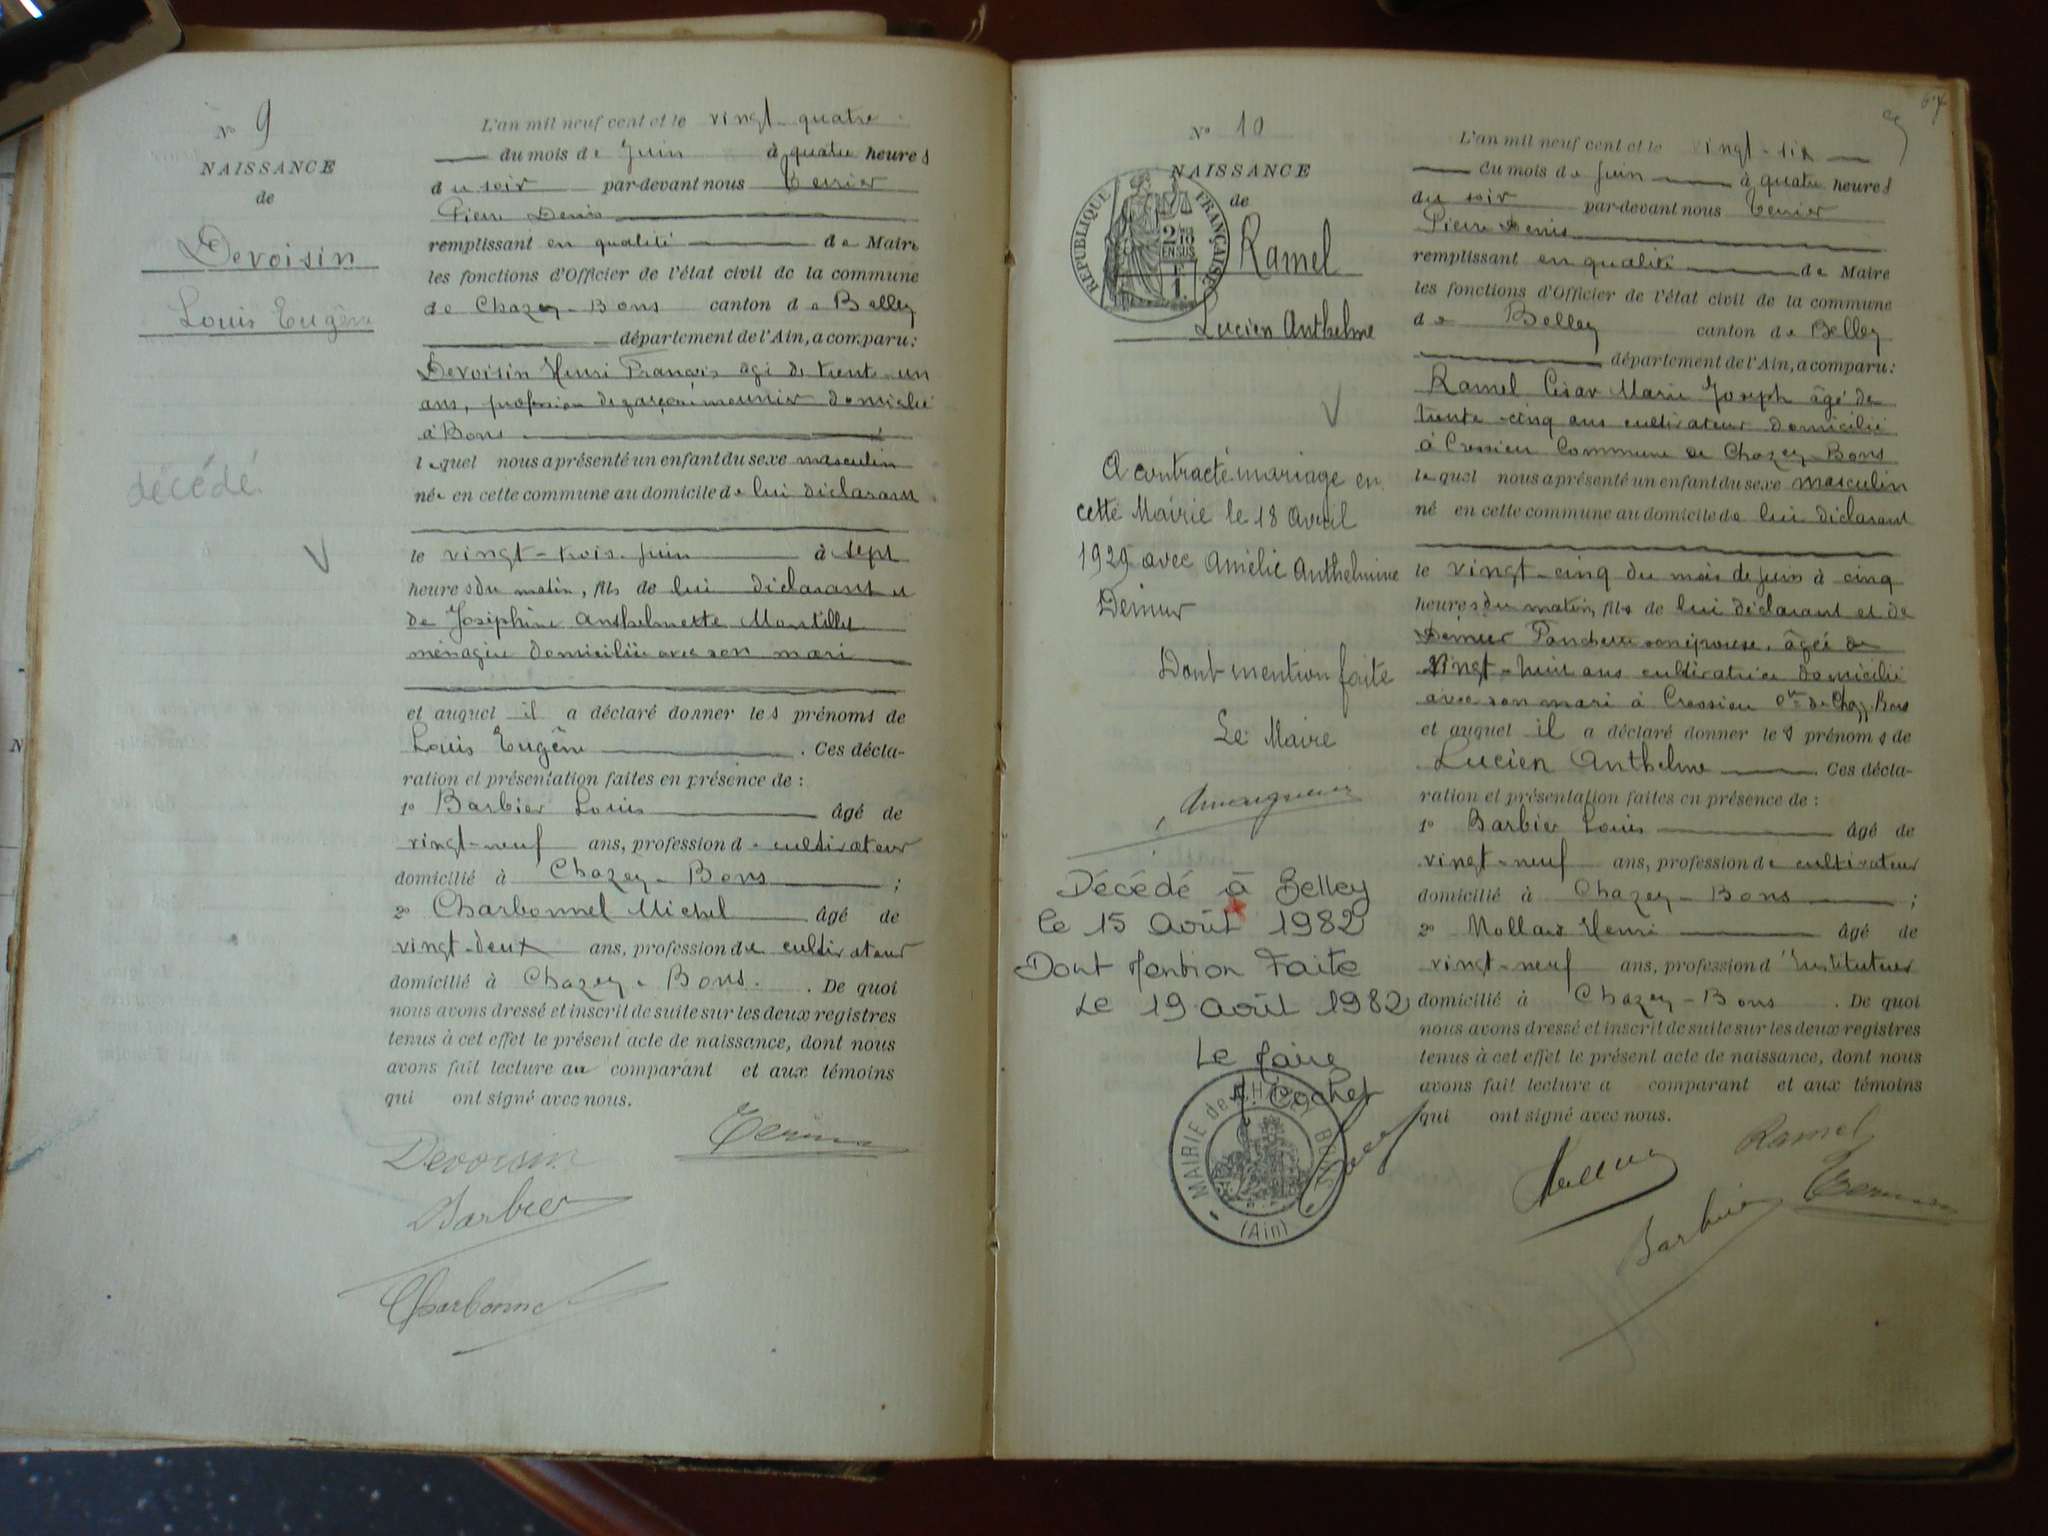 N° 9
NAISSANCE
de
Devoisin
Louis Eugène
décédé
L'an mil neuf cent et le vingt-quatre
du mois de Juin à quatre heures
du soir par-devant nous Terrier
Pierre Denis
remplissant en qualité de Maire
les fonctions d'Officier de l'état civil de la commune
de Chazey-Bons canton de Belley
département de l'Ain, a comparu :
Devoisin Henri François âgé de trente-un
ans, profession de garçon meunier domicilié
à Bons
lequel nous a présenté un enfant du sexe masculin
né en cette commune au domicile de lui déclarant
le vingt-trois juin à sept
heures du matin, fils de lui déclarant et
de Joséphine Anthelmette Montillet
ménagère domiciliée avec son mari
et auquel il a déclaré donner les prénoms de
Louis Eugène . Ces décla-
ration et présentation faites en présence de :
1° Barbier Louis âgé de
vingt-neuf ans, profession de cultivateur
domicilié à Chazey-Bons ;
2° Charbonnel Michel âgé de
vingt-deux ans, profession de cultivateur
domicilié à Chazey-Bons. . De quoi
nous avons dressé et inscrit de suite sur les deux registres
tenus à cet effet le présent acte de naissance, dont nous
avons fait lecture au comparant et aux témoins
qui ont signé avec nous.
Devoisin
Terrier
Barbier
Charbonnel
67
N° 10
NAISSANCE
de
RÉPUBLIQUE FRANÇAISE
2/10 EN SUS
1 F.
Ramel
Lucien Anthelme
A contracté mariage en
cette Mairie le 18 Avril
1929 avec Amélie Anthelmine
Demeur
Dont mention faite
Le Maire
Décédé à Belley
le 15 Août 1982
Dont Mention Faite
Le 19 août 1982
Le Maire
Cochet
MAIRIE de CHAZEY BONS
(Ain)
L'an mil neuf cent et le vingt-six
du mois de Juin à quatre heures
du soir par-devant nous Terrier
Pierre Denis
remplissant en qualité de Maire
les fonctions d'Officier de l'état civil de la commune
de Belley canton de Belley
département de l'Ain, a comparu :
Ramel César Marie Joseph âgé de
trente-cinq ans cultivateur domicilié
à Cressieu Commune de Chazey-Bons
lequel nous a présenté un enfant du sexe masculin
né en cette commune au domicile de lui déclarant
le vingt-cinq du mois de juin à cinq
heures du matin, fils de lui déclarant et de
Demeur Fanchette son épouse, âgée de
vingt-huit ans cultivatrice domicilié
avec son mari à Cressieu Cne de Chaz. Bons
et auquel il a déclaré donner les prénoms de
Lucien Anthelme . Ces décla-
ration et présentation faites en présence de :
1° Barbier Louis âgé de
vingt-neuf ans, profession de cultivateur
domicilié à Chazey-Bons ;
2° Mollard Henri âgé de
vingt-neuf ans, profession d'Instituteur
domicilié à Chazey-Bons . De quoi
nous avons dressé et inscrit de suite sur les deux registres
tenus à cet effet le présent acte de naissance, dont nous
avons fait lecture a comparant et aux témoins
qui ont signé avec nous.
Ramel
Barbier
Terrier